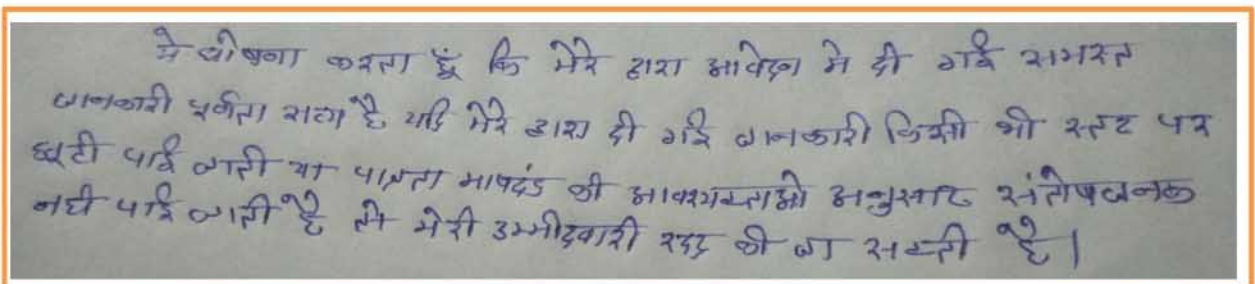 मे घोषना करता हूँ कि मेरे द्वारा आवेदन मे दी गई समस्त
जानकारी पूर्णता सत्य है यदि मेरे द्वारा दी गई जानकारी किसी भी स्तर पर
झूटी पाई जाती या पात्रता मापदंड की आवश्यक्ताओ अनुसार संतोषजनक
नही पाई जाती है तो मेरी उम्मीदवारी रदद की जा सकती है।